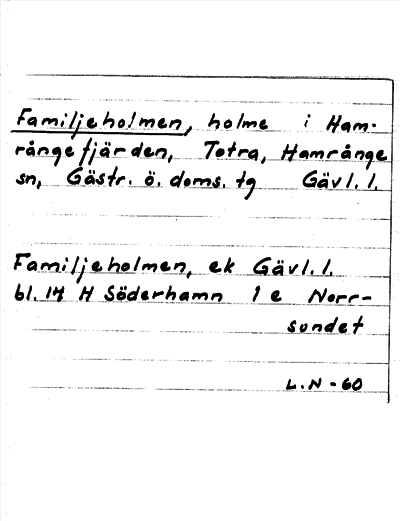 Familjeholmen, holme i Ham-
rångefjärden, Totra, Hamrånge
sn, Gästr. ö. doms. tg Gävl. l.
Familjeholmen, ek Gävl. l.
bl. 14 H Söderhamn 1 e Norr-
sundet
L. N - 60